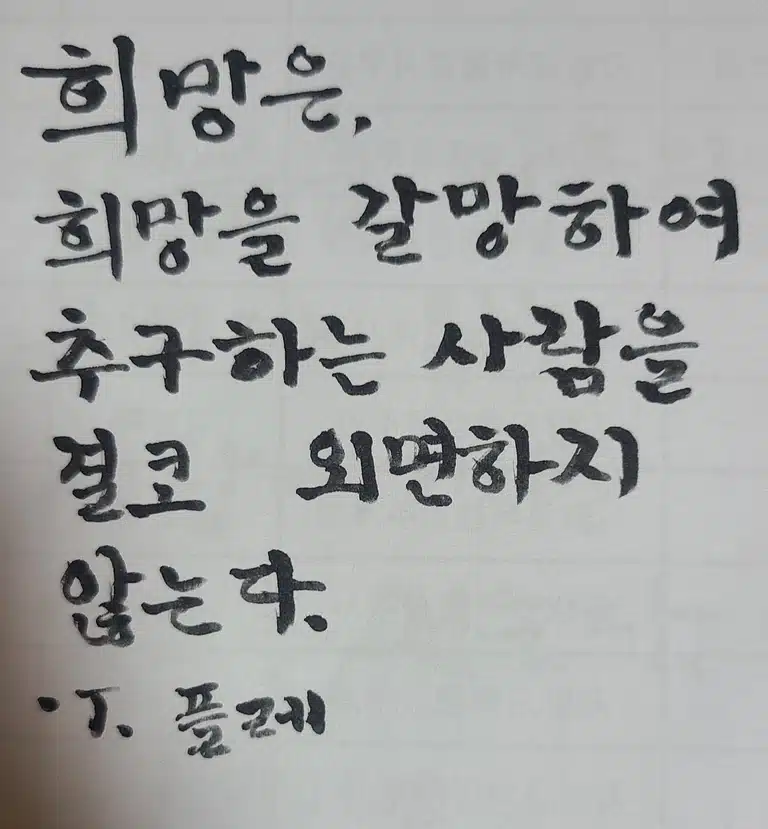 희망은,
희망을 갈망하여
추구하는 사람을
결코 외면하지
않는다.
·J. 플레